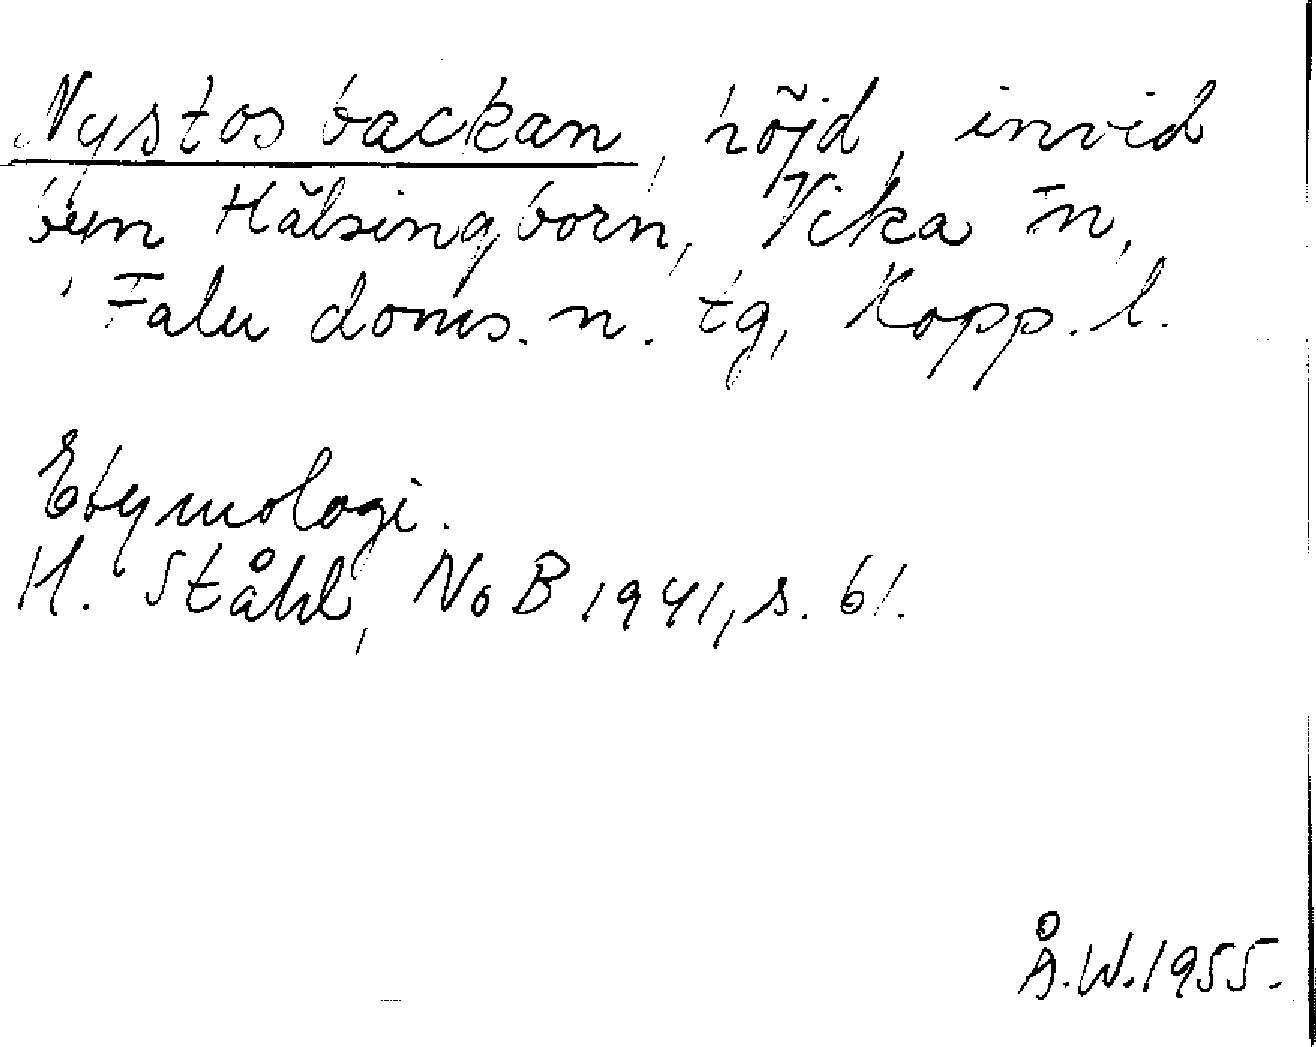 Nystosbackan, höjd, invid
byn Hälsingborn, Vika sn,
Falu doms. n. tg, Kopp. l.
Etymologi.
H. Ståhl, NoB 1941, s. 61.
Å.W. 1955.